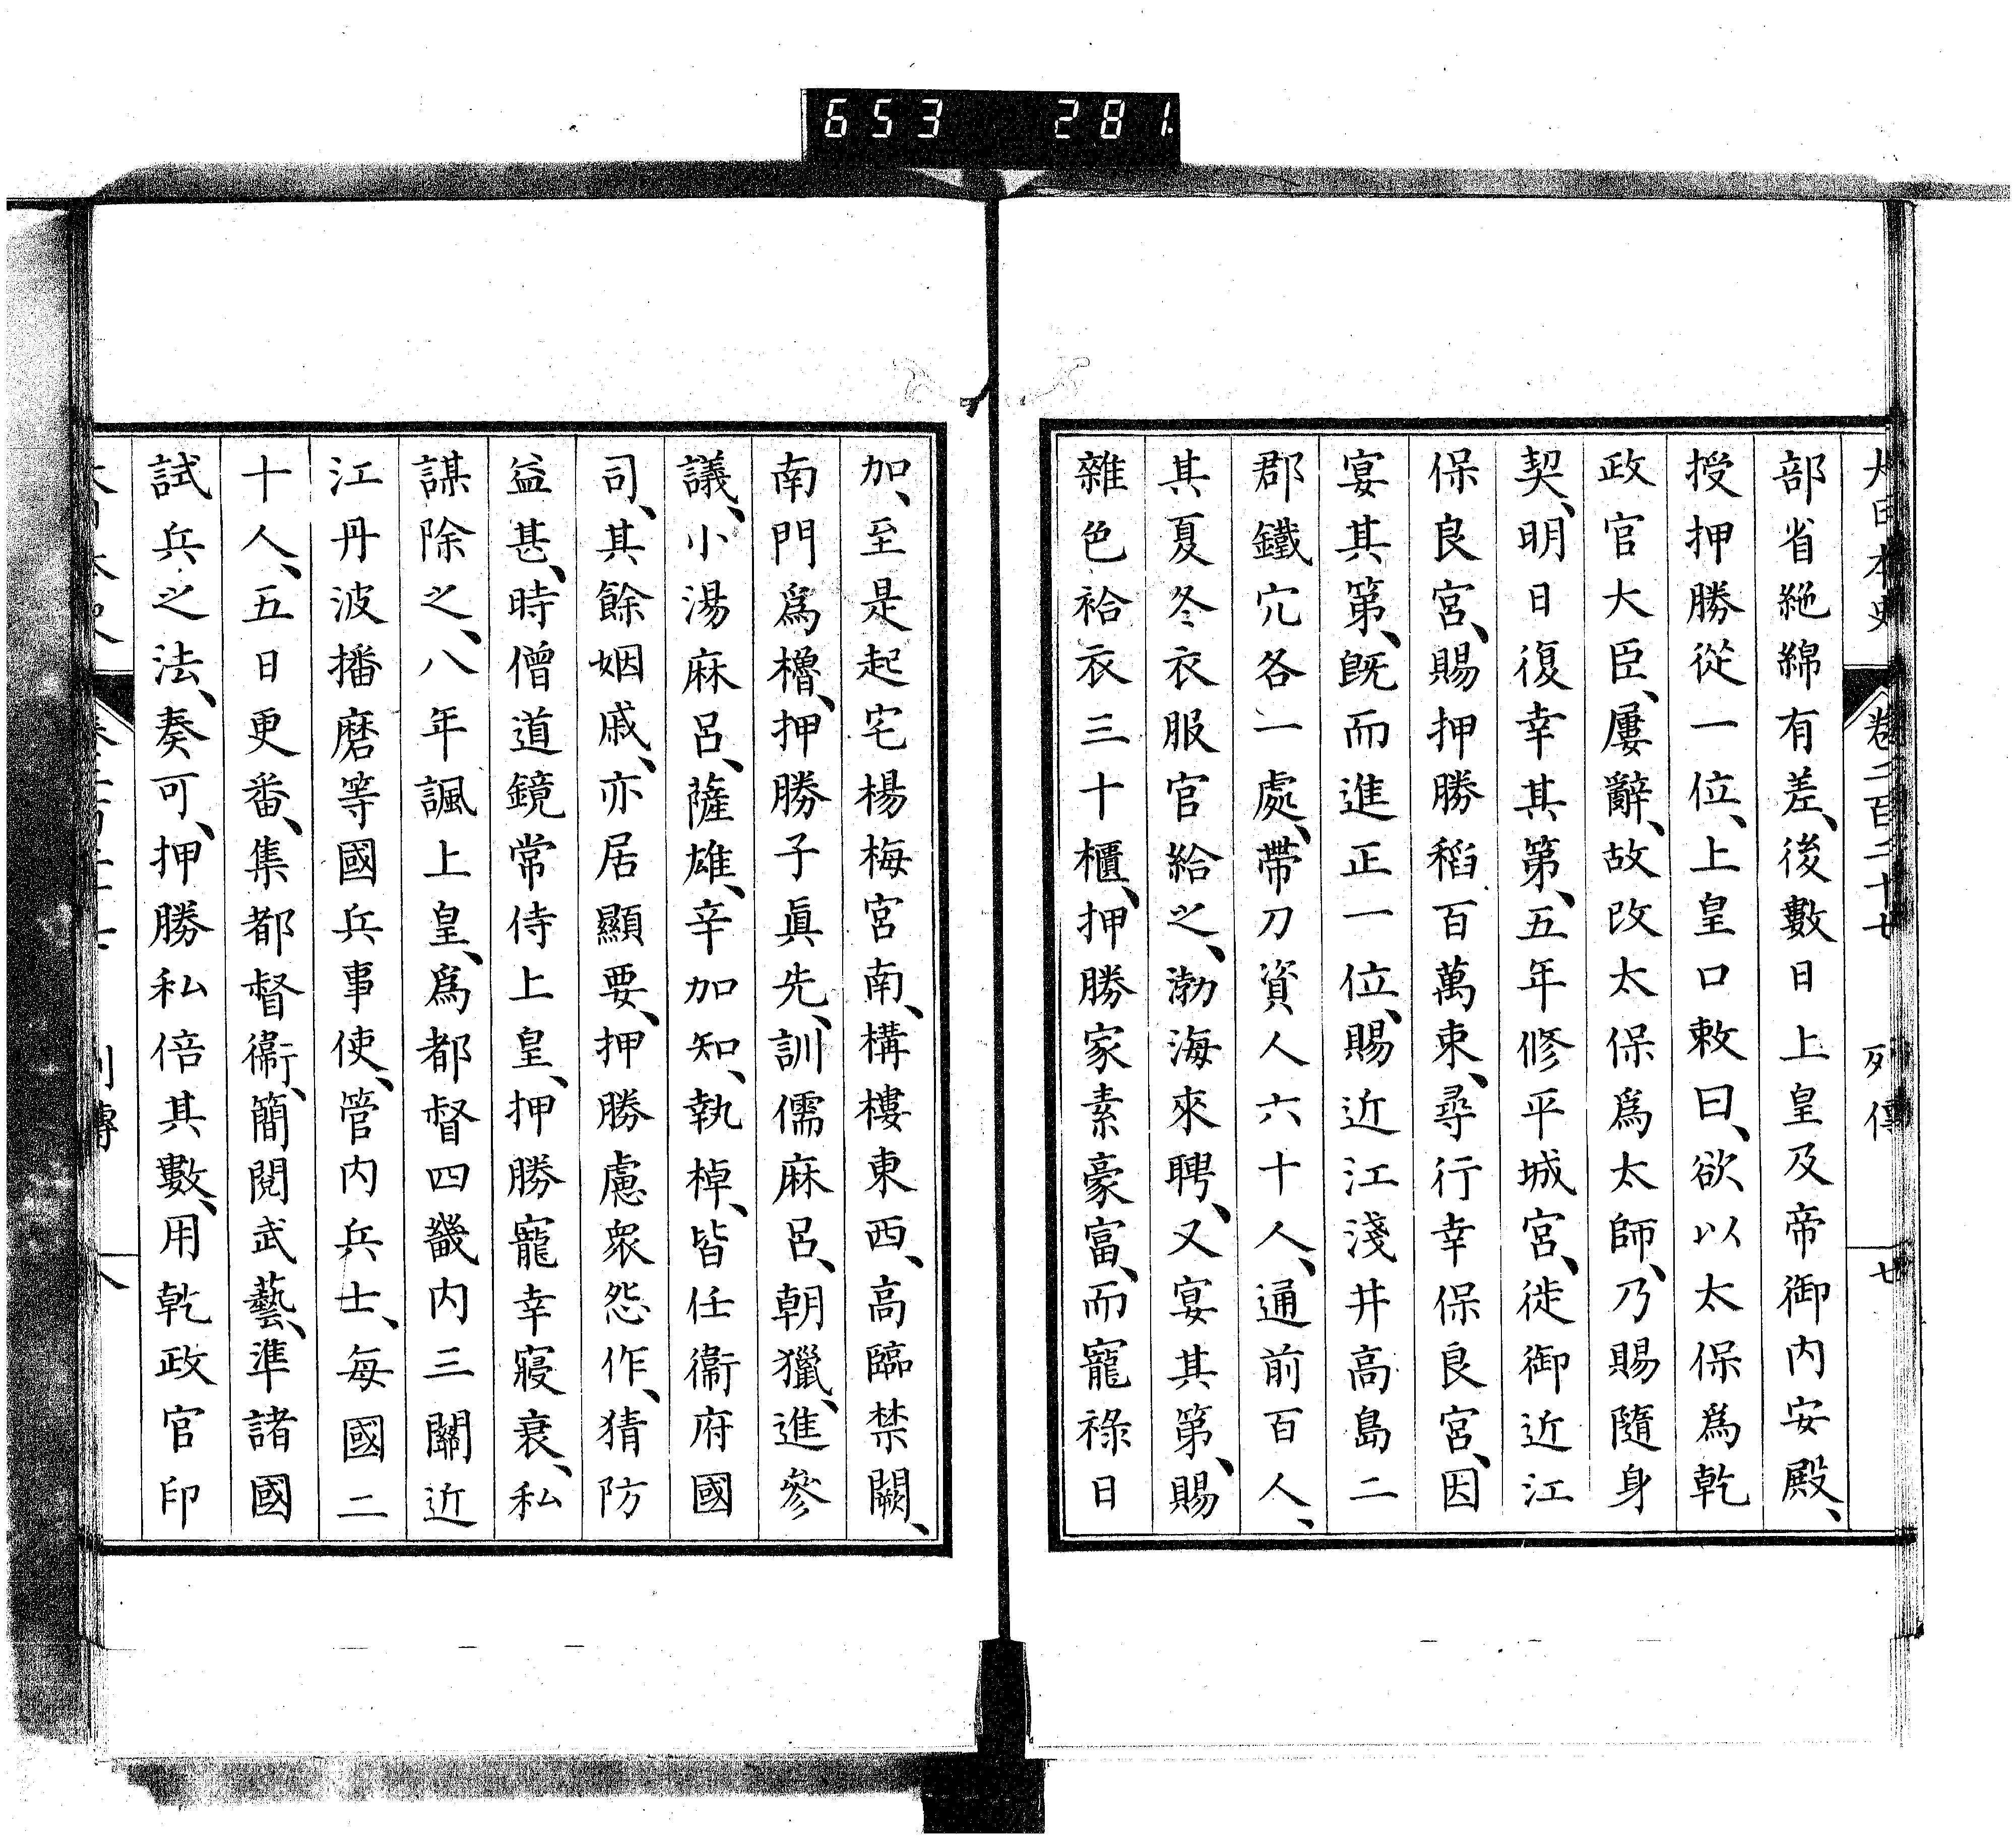 653 281
部省絁綿有差、後數日上皇及帝御内安殿、
授押勝從一位、上皇口敕曰、欲以太保爲乾
政官大臣、屢辭、故改太保爲太師、乃賜隨身
契、明日復幸其第、五年修平城宮、徙御近江
保良宮、賜押勝稻百萬束、尋行幸保良宮、因
宴其第、既而進正一位、賜近江淺井高島二
郡鐵穴各一處、帶刀資人六十人、通前百人、
其夏冬衣服官給之、渤海來聘、又宴其第、賜
雜色袷衣三十櫃、押勝家素豪富、而寵祿日
加、至是起宅楊梅宮南、構樓東西、高臨禁闕、
南門爲櫓、押勝子眞先、訓儒麻呂、朝獵、進參
議、小湯麻呂、薩雄、辛加知、執棹、皆任衞府國
司、其餘姻戚、亦居顯要、押勝慮衆怨作、猜防
益甚、時僧道鏡常侍上皇、押勝寵幸寢衰、私
謀除之、八年諷上皇、爲都督四畿内三關近
江丹波播磨等國兵事使、管内兵士、每國二
十人、五日更番、集都督衞、簡閱武藝、準諸國
試兵之法、奏可、押勝私倍其數、用乾政官印